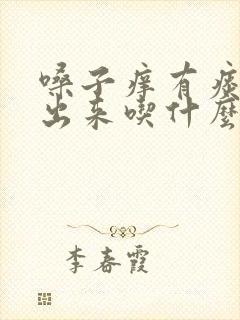 嗓子痒有痰
出来喫什麼
李春霞